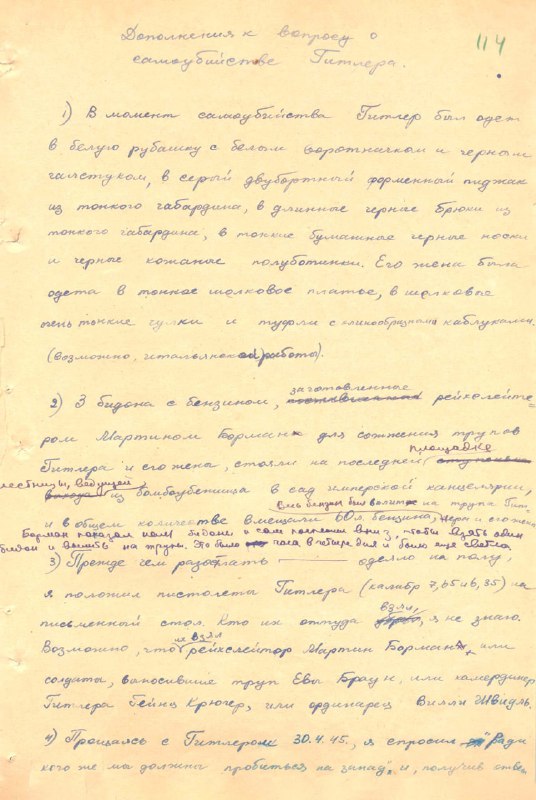 Дополнения к вопросу о
самоубийстве Гитлера.
114
1) В момент самоубийства Гитлер был одет
в белую рубашку с белым воротничком и черным
галстуком, в серый двубортный форменный пиджак
из тонкого габардина, в длинные черные брюки из
тонкого габардина, в тонкие бумажные черные носки
и черные кожаные полуботинки. Его жена была
одета в тонкое шолковое платье, в шолковые
очень тонкие чулки и туфли с клинообразными каблуками
(возможно, итальянской работы).
заготовленные
2) 3 бидона с бензином, рейхслейте-
ром Мартином Борманом для сожжения трупов
площадке
Гитлера и его жены, стояли на последней
лестницы, ведущей
из бомбоубежища в сад имперской канцелярии,
Весь бензин был вылит на трупы Гит-
и в общем количестве вмещали 60 л. бензина, лера и его жены
Борман показал нам бидоны и сам помчался вниз, чтобы взять один
бидон и вылить на трупы. Это было часа в четыре дня и было еще светло
3) Прежде чем разостлать одеяло на полу,
я положил пистолеты Гитлера (калибр 7,65 и 6,35) на
взял,
письменный стол. Кто их оттуда , я не знаю.
их взял
Возможно, что рейхслейтор Мартин Борман, или
солдаты, выносившие труп Евы Браун, или камердинер
Гитлера Гейнц Крюгер, или ординарец Вилли Швидль.
4) Прощаясь с Гитлером 30.4.45., я спросил "Ради
кого же мы должны пробиться на запад" и, получив ответ